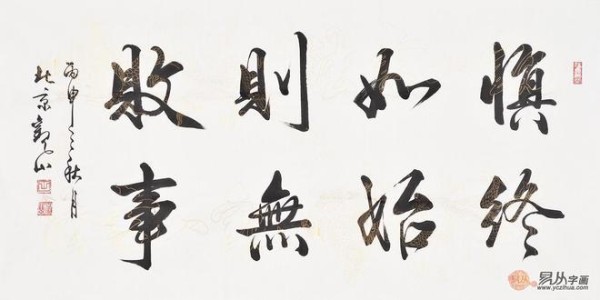 慎終
如始
則無
敗事
丙申之秋月
北京 山
易从字画
www.yczihua.com